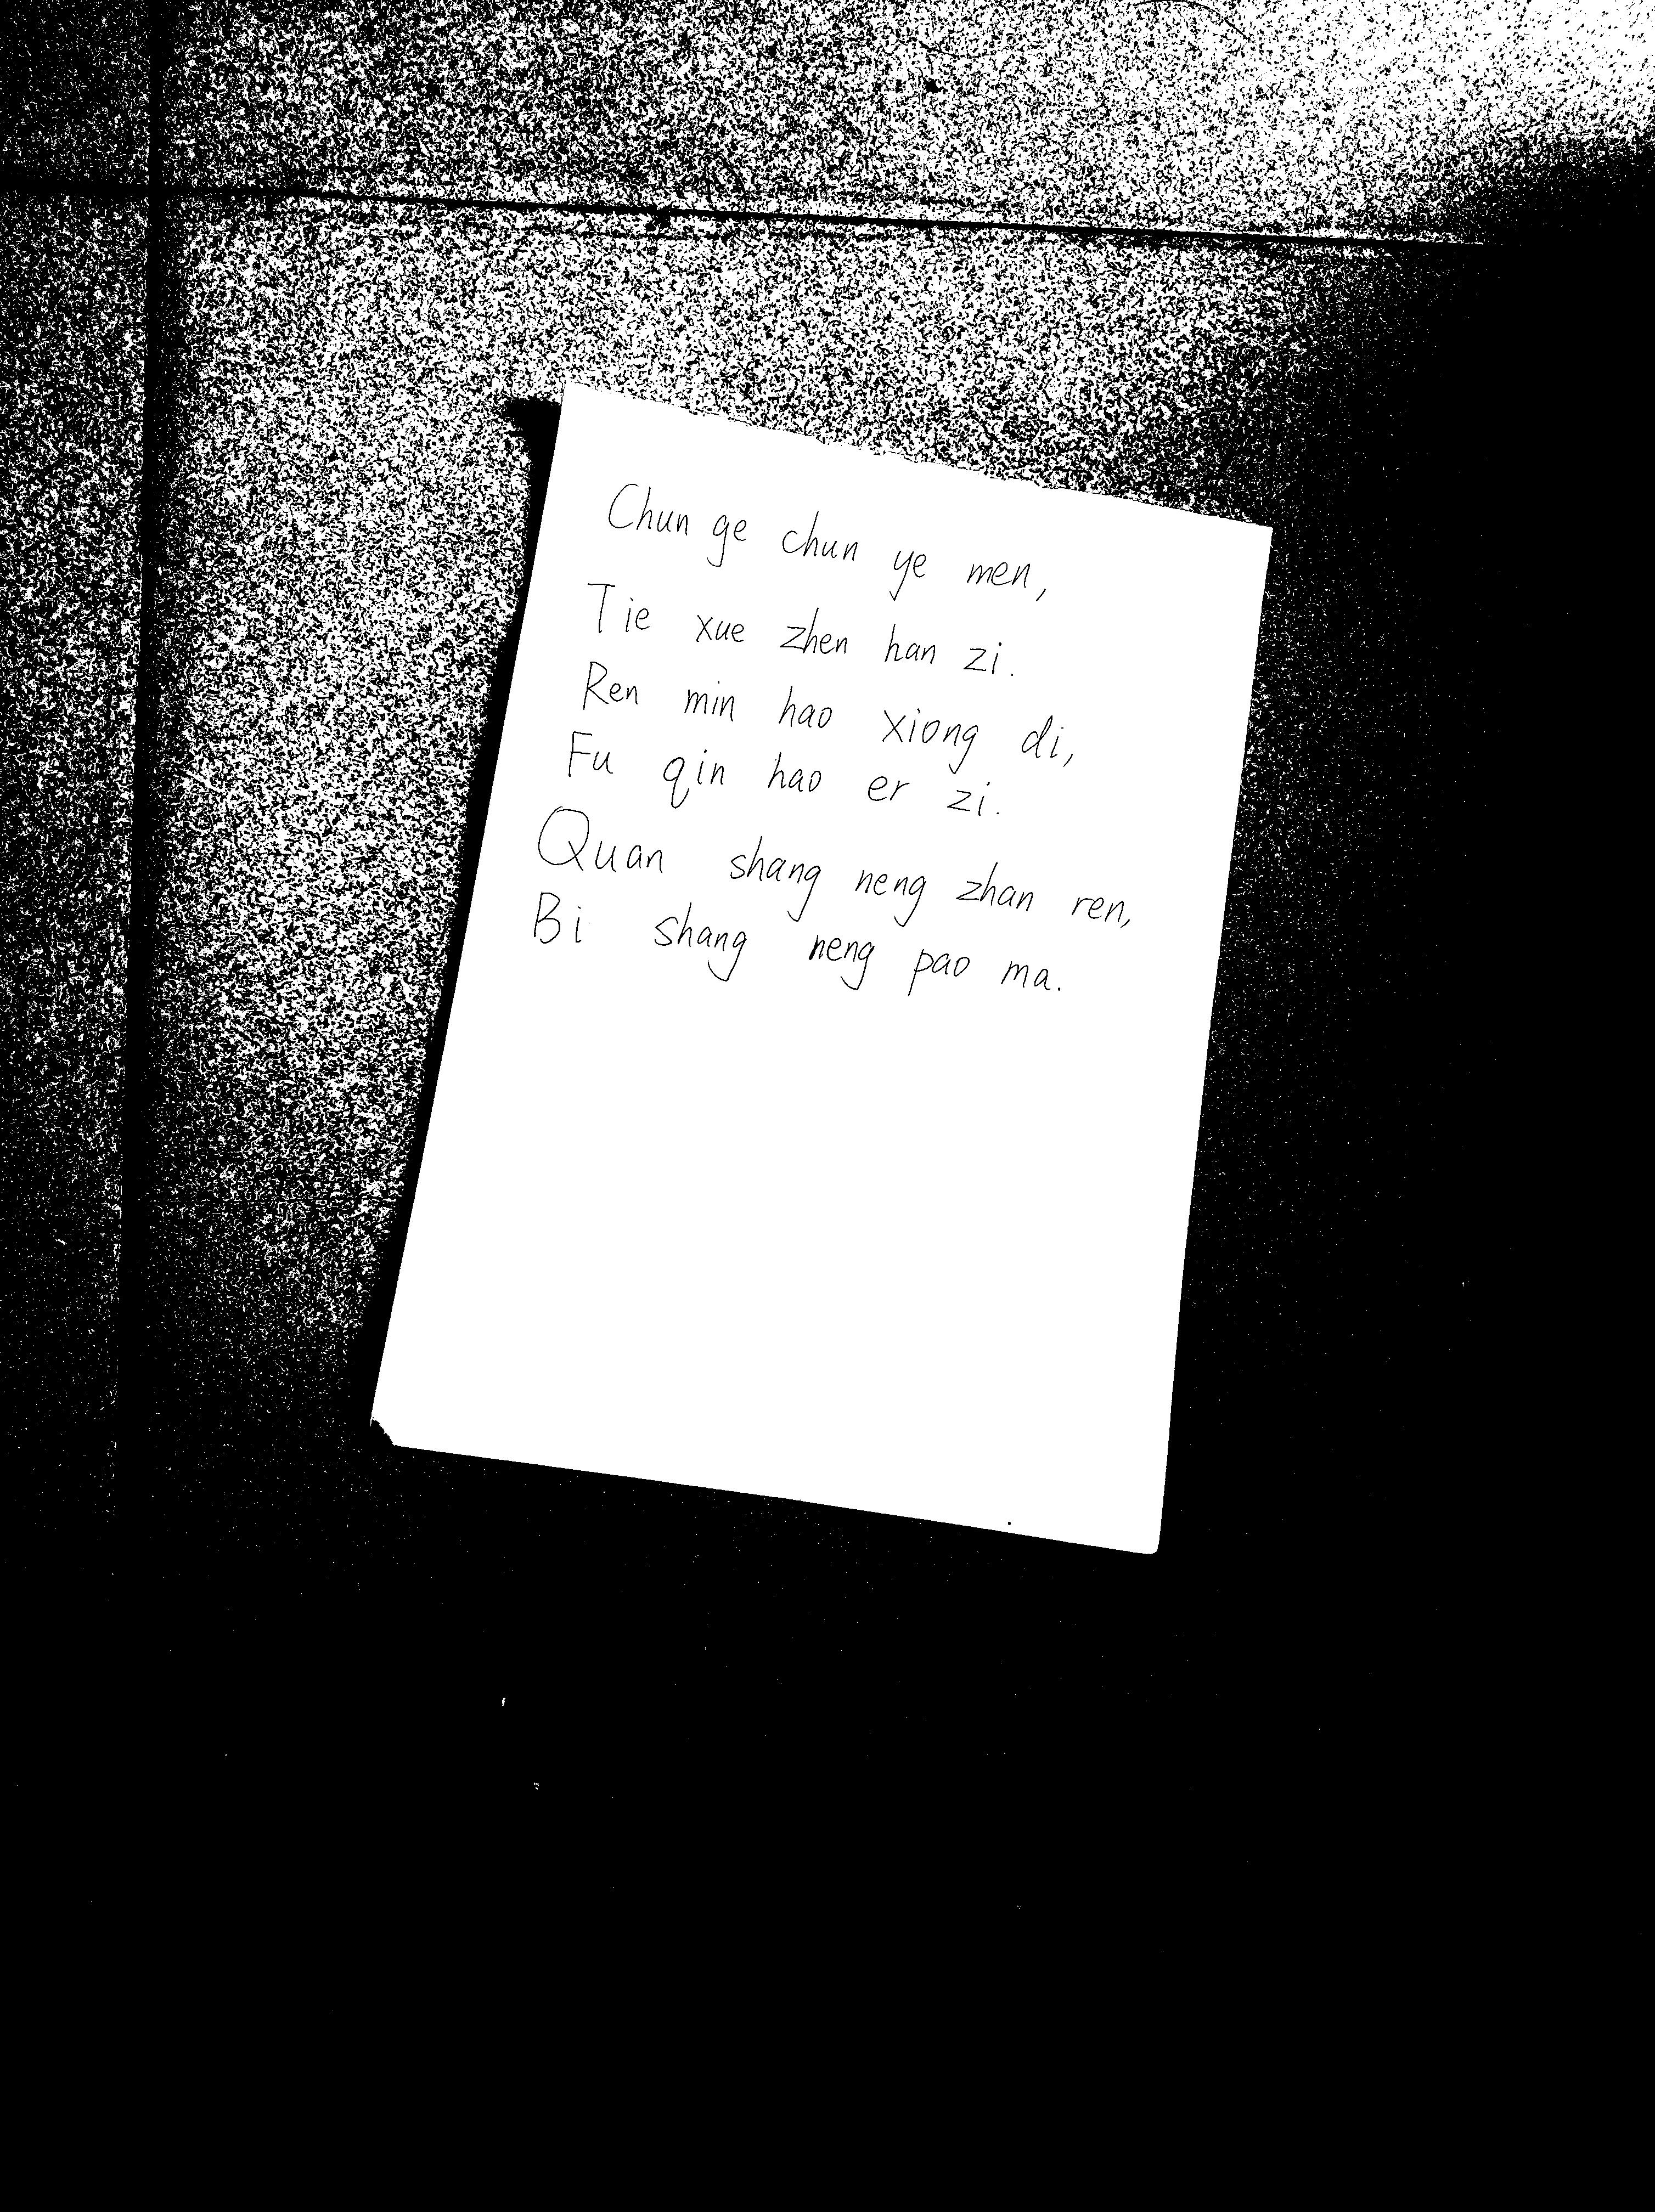 Chun ge chun ye men,
Tie xue zhen han zi.
Ren min hao xiong di,
Fu qin hao er zi.
Quan shang neng zhan ren,
Bi shang neng pao ma.